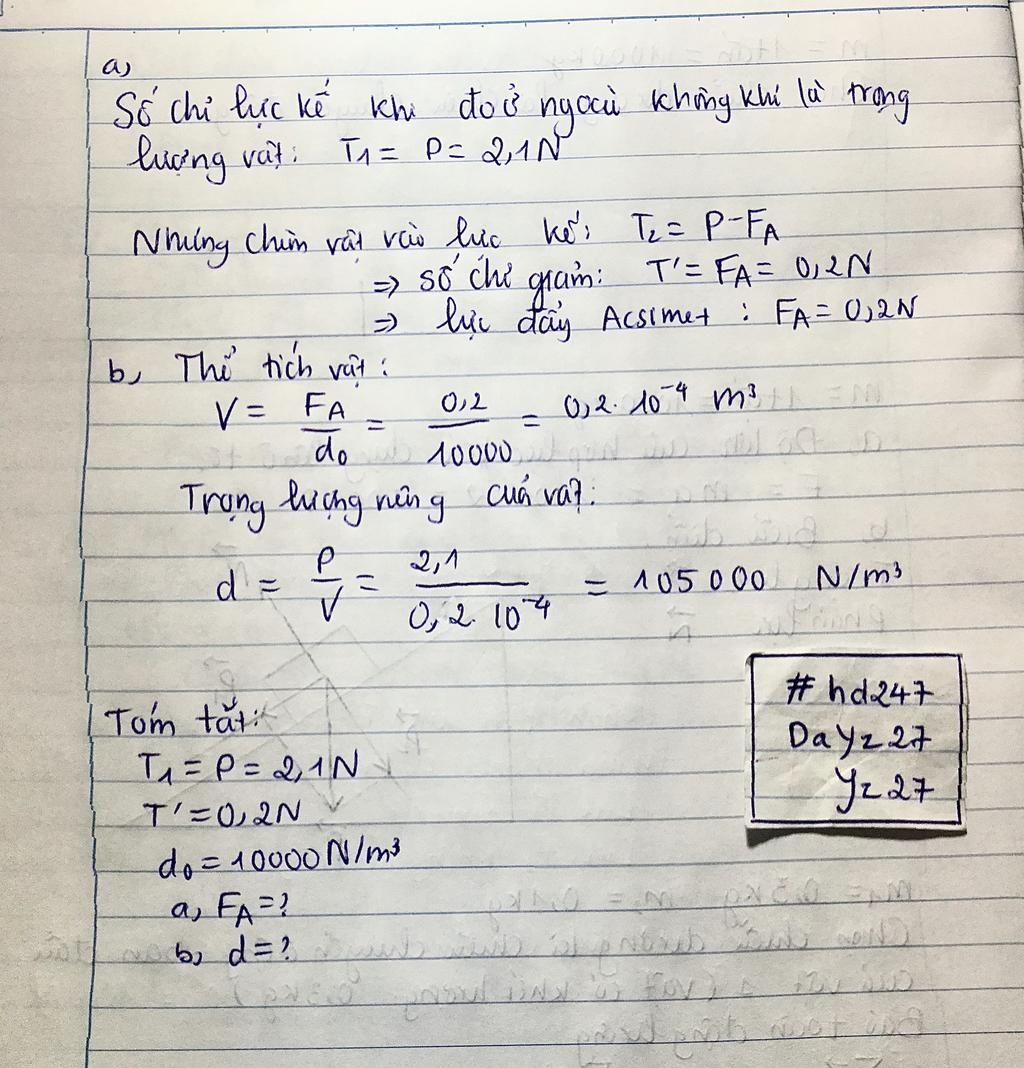 a,
Số chỉ lực kế khi đo ở ngoài không khí là trọng
lượng vật: T1 = P = 2,1N
Nhúng chìm vật vào lực kế: T2 = P - FA
=> số chỉ giảm: T' = FA = 0,2N
=> lực đẩy Acsimet : FA = 0,2N
b, Thể tích vật:
V = FA/d0 = 0,2/10000 = 0,2.10⁻⁴ m³
Trọng lượng riêng của vật:
d = P/V = 2,1/0,2.10⁻⁴ = 105000 N/m³
Tóm tắt:
T1 = P = 2,1N
T' = 0,2N
d0 = 10000N/m³
a, FA = ?
b, d = ?
# hd247
DaYz27
Yz27